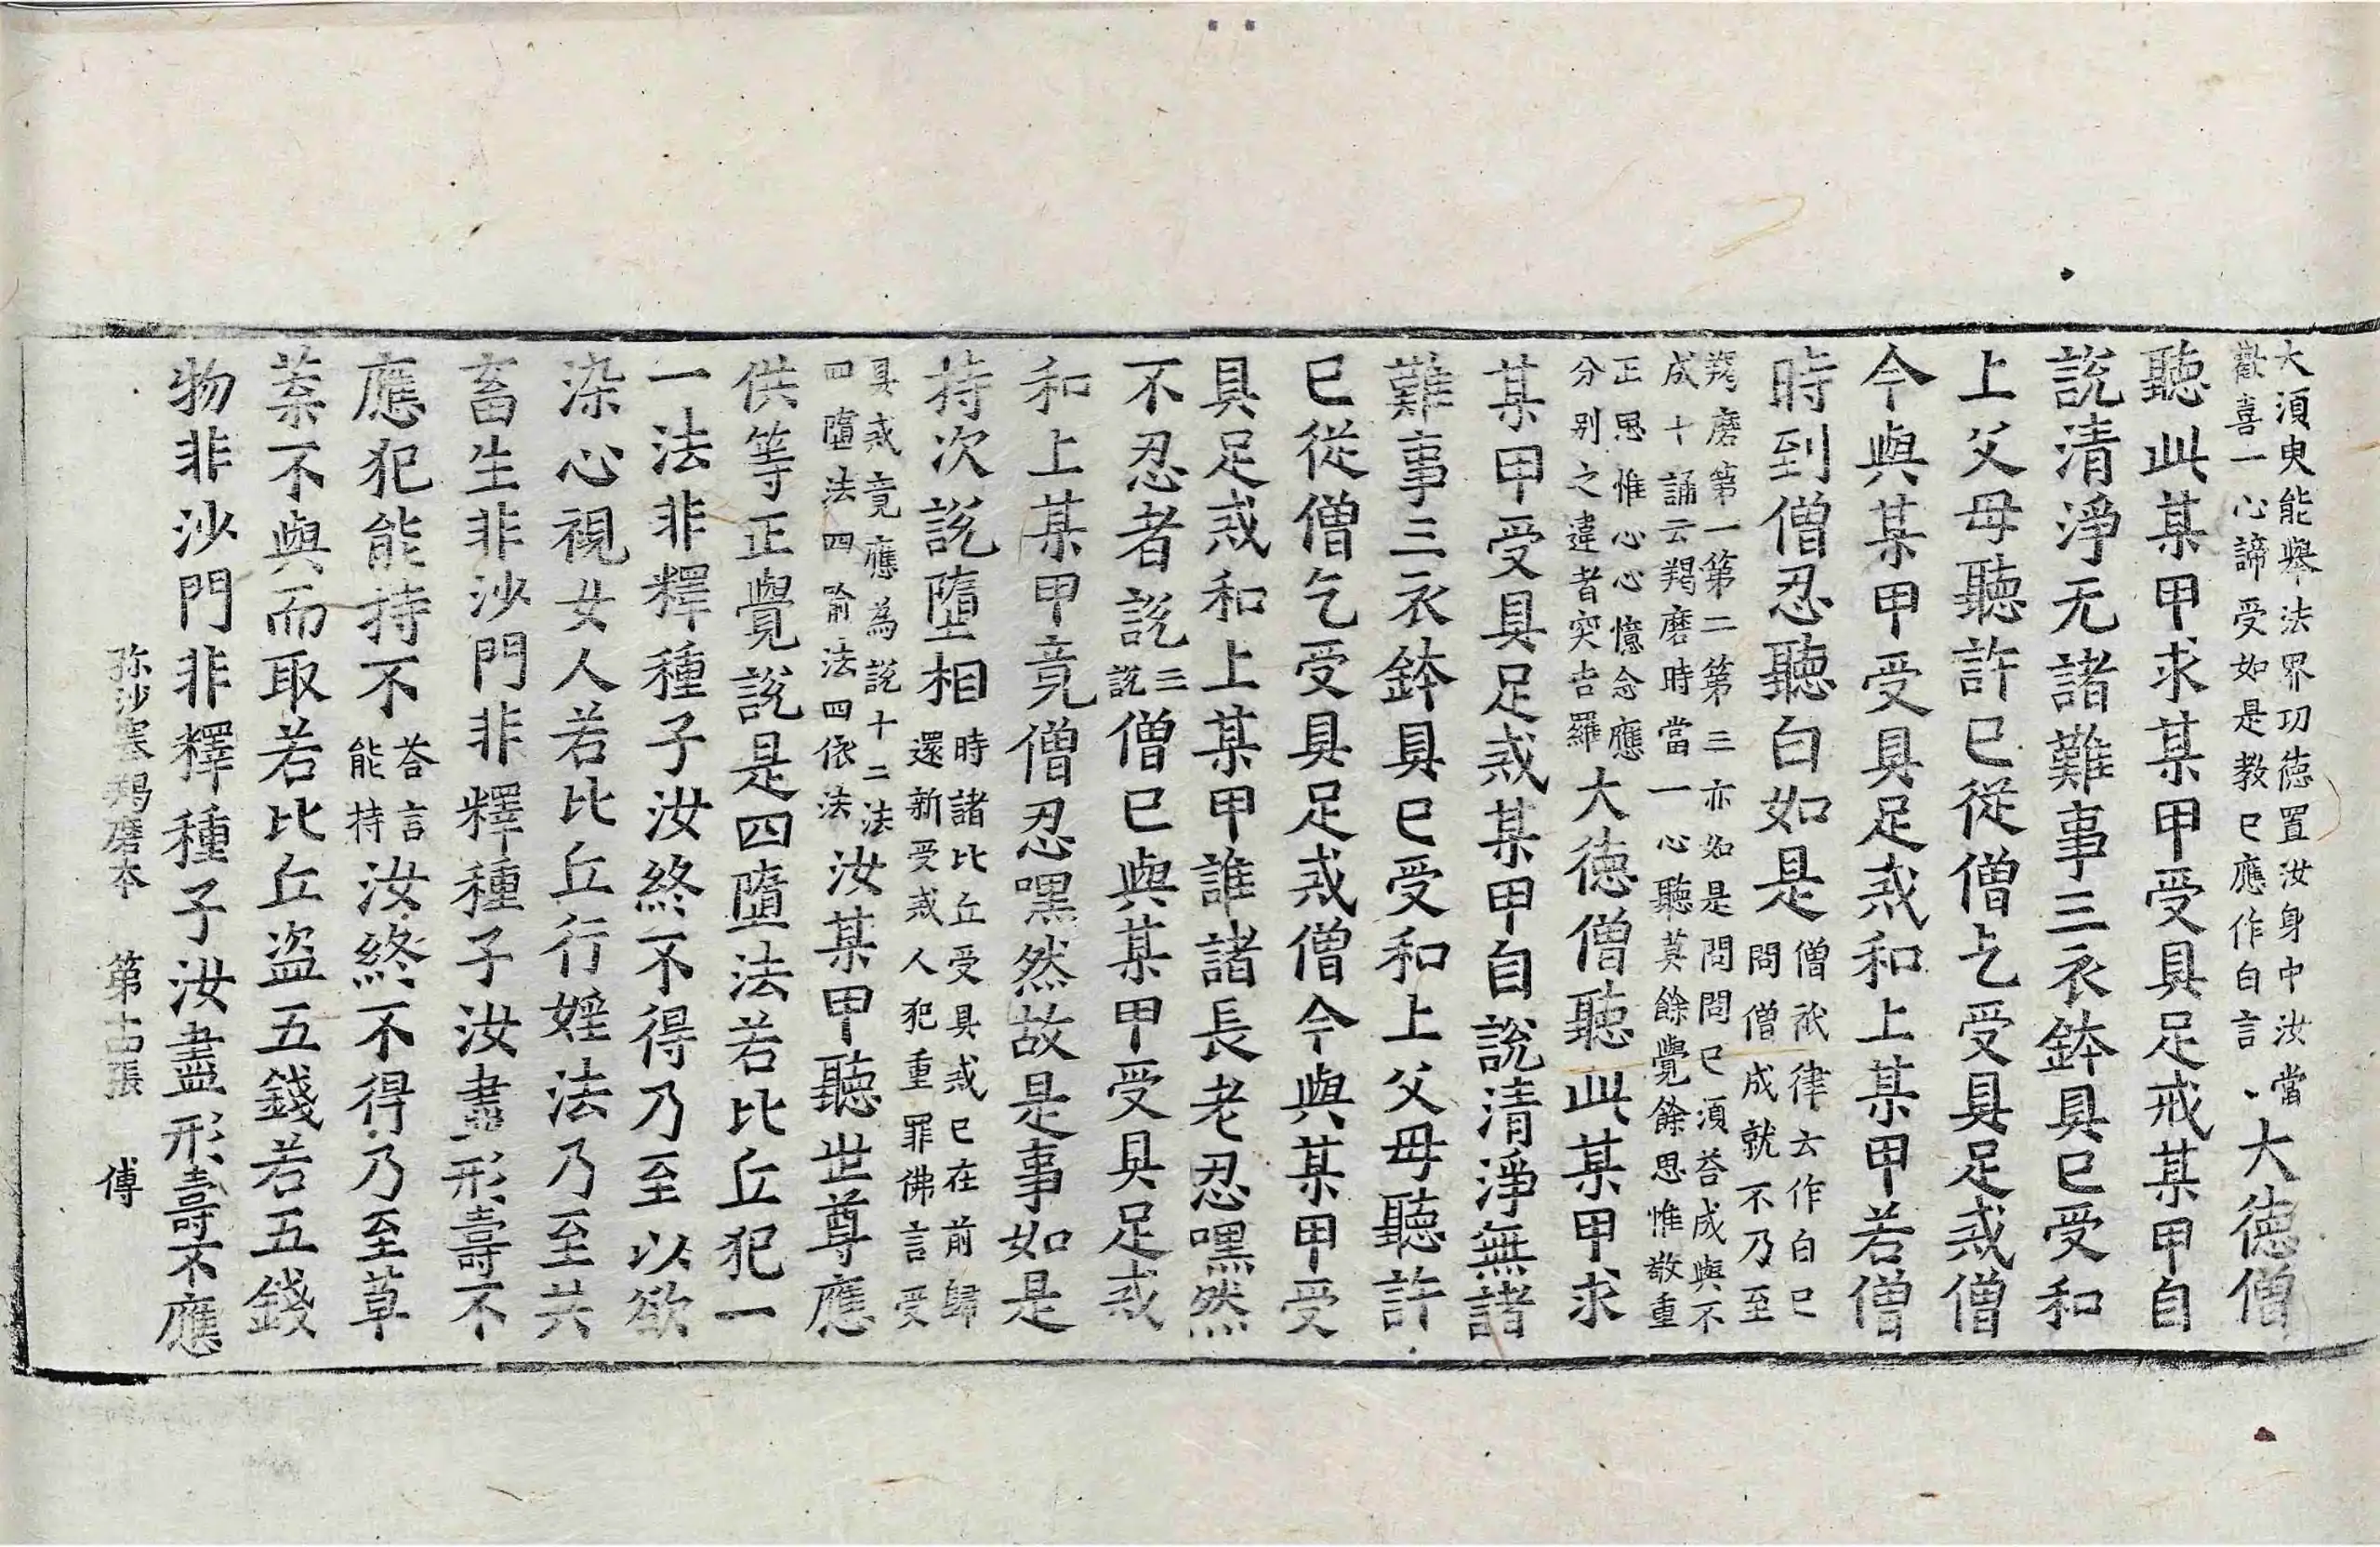 大須臾能舉法界功德置汝身中汝當
歡喜一心諦受如是教已應作白言、大德僧
聽此某甲求某甲受具足戒某甲自
說清淨无諸難事三衣鉢具已受和
上父母聽許已從僧乞受具足戒僧
今與某甲受具足戒和上某甲若僧
時到僧忍聽白如是僧祇律云作白已
問僧成就不乃至
羯磨第一第二第三亦如是問問已須荅成與不
成十誦云羯磨時當一心聽莫餘覺餘思惟敬重
正思惟心心憶念應
分別之違者突吉羅大德僧聽此某甲求
某甲受具足戒某甲自說清淨無諸
難事三衣鉢具已受和上父母聽許
已從僧乞受具足戒僧今與某甲受
具足戒和上某甲誰諸長老忍嘿然
不忍者說三說僧已與某甲受具足戒
和上某甲竟僧忍嘿然故是事如是
持次說墮相時諸比丘受具戒已在前歸
還新受戒人犯重罪佛言受
具戒竟應為說十二法
四墮法四喻法四依法汝某甲聽世尊應
供等正覺說是四墮法若比丘犯一
一法非釋種子汝終不得乃至以欲
染心視女人若比丘行婬法乃至共
畜生非沙門非釋種子汝盡形壽不
應犯能持不荅言
能持汝終不得乃至草
葉不與而取若比丘盜五錢若五錢
物非沙門非釋種子汝盡形壽不應
弥沙塞羯磨本 第十四張 傅